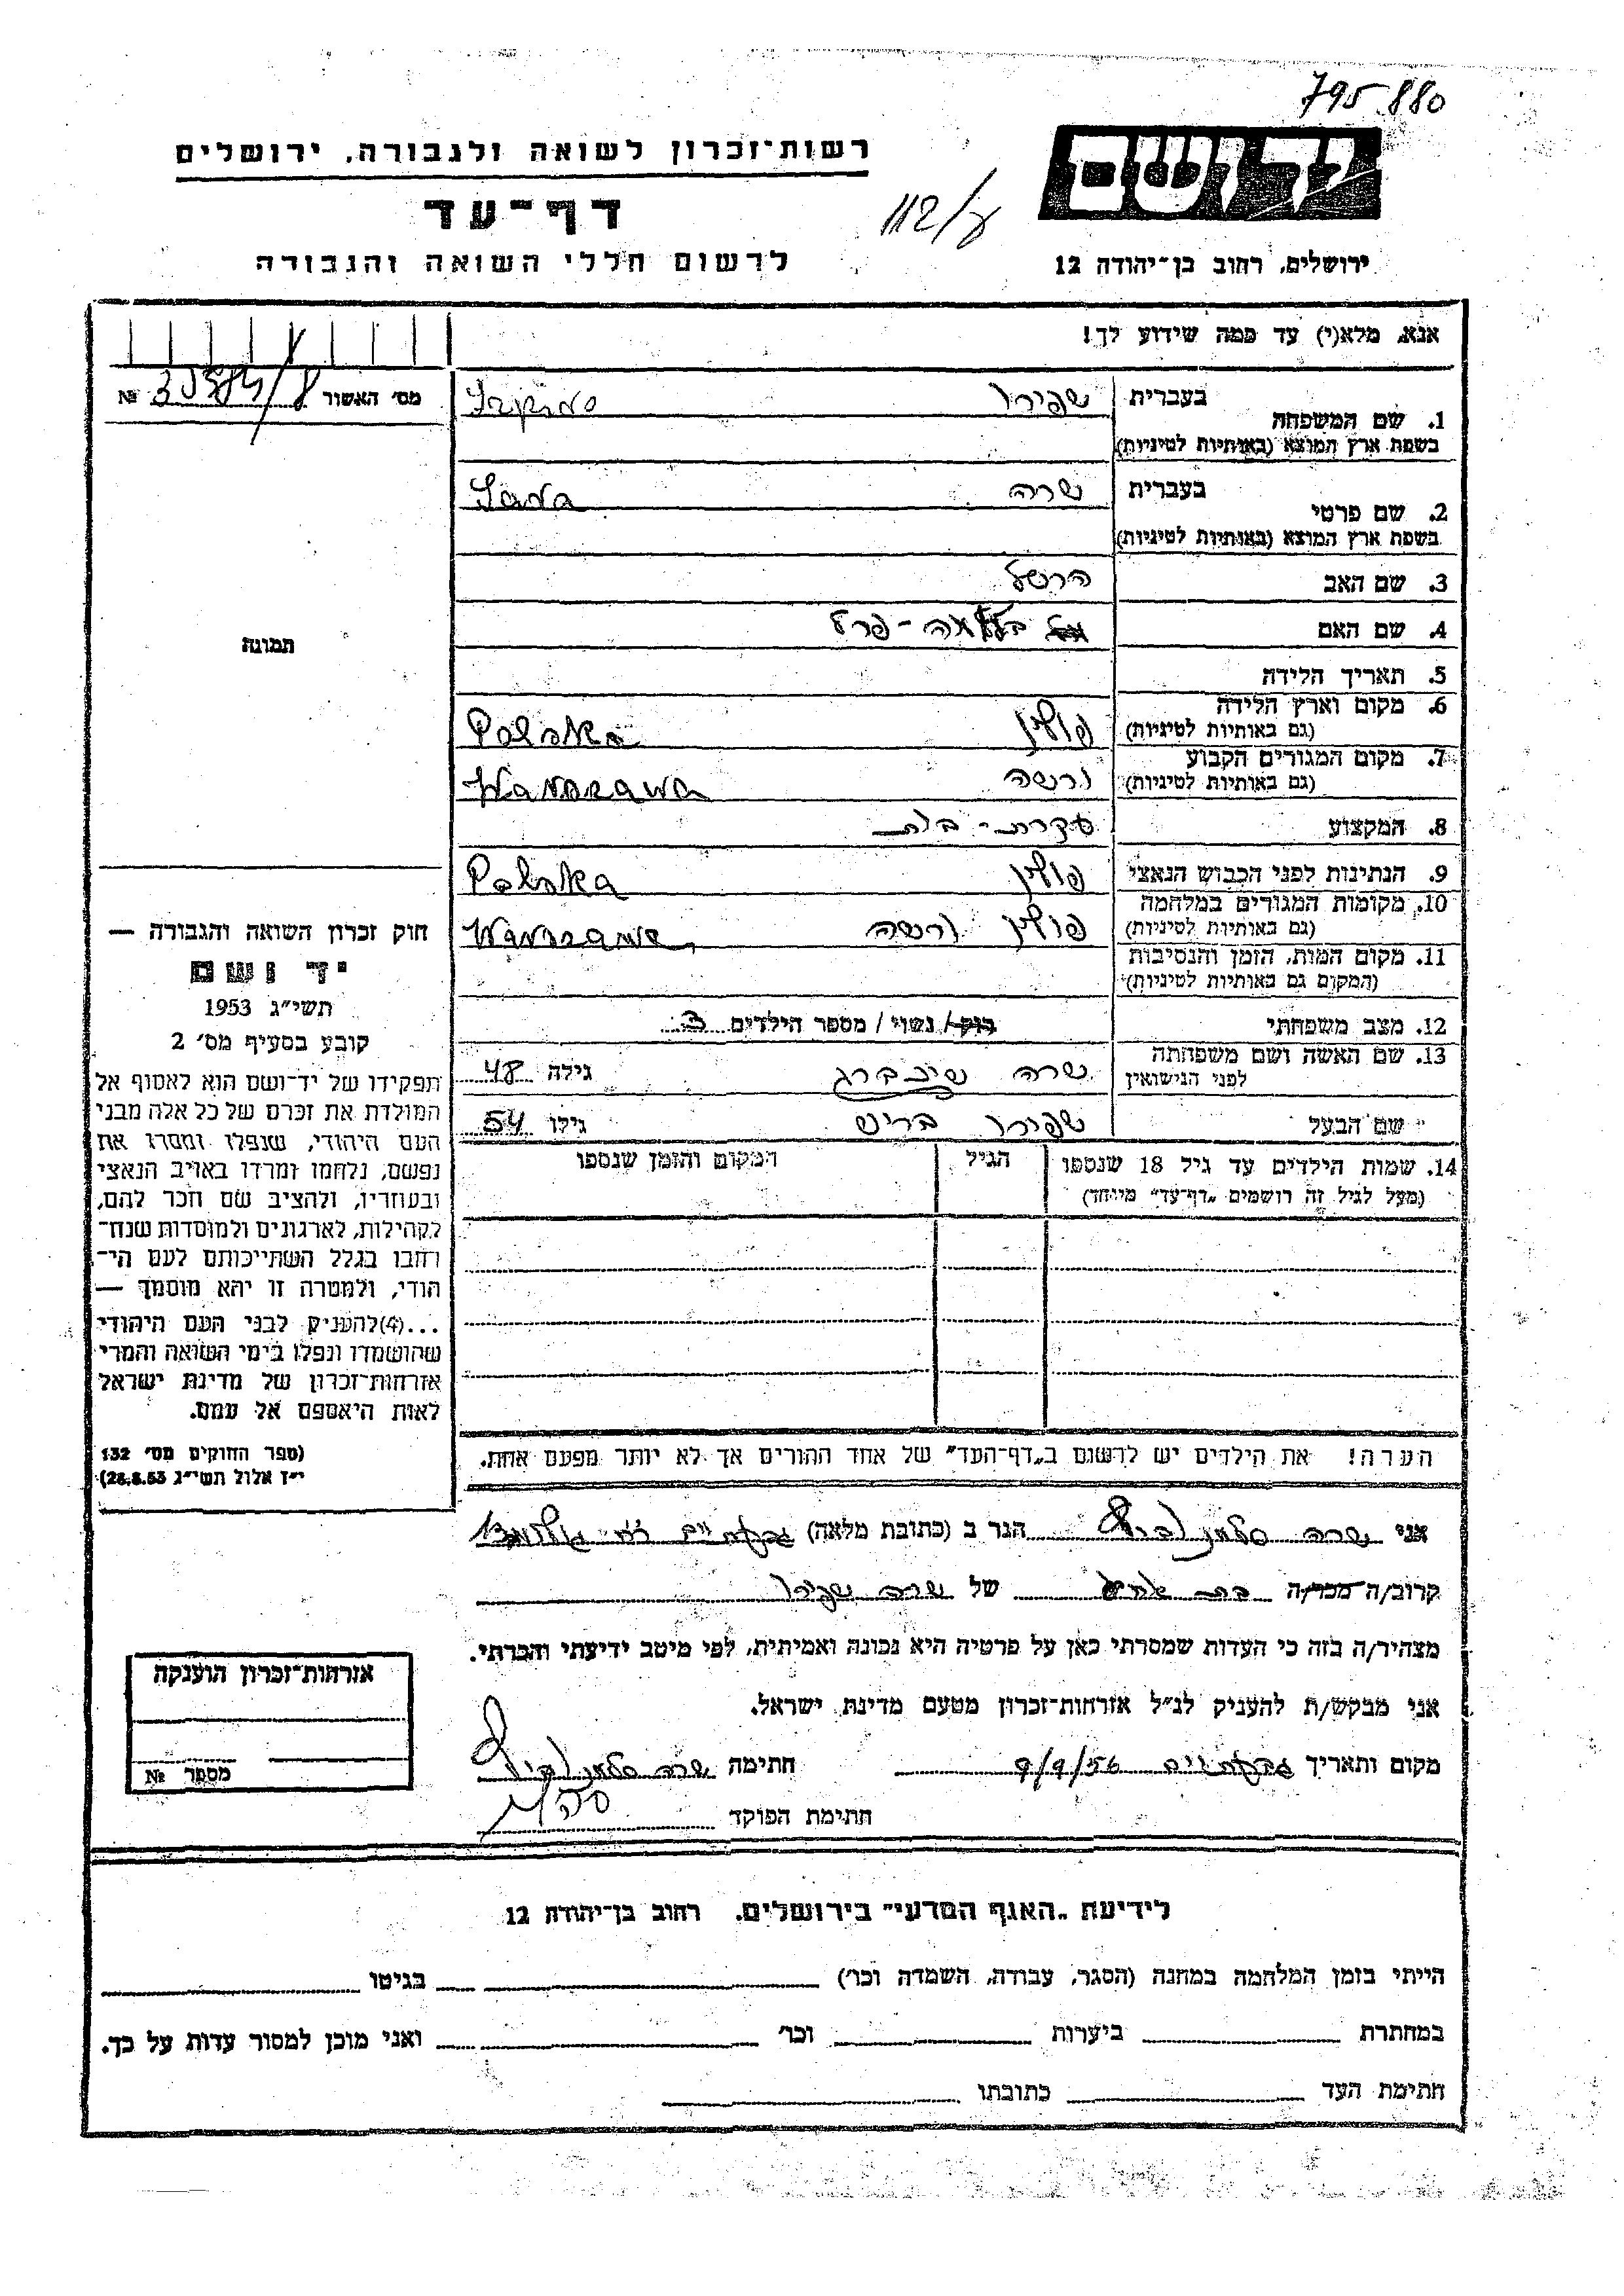 795880
רשות-זכרון לשואה ולגבורה, ירושלים
דף-עד
לרשום חללי השואה והגבורה
112/ע
יד ושם
ירושלים, רחוב בן-יהודה 12
אנא, מלא(י) עד כמה שידוע לך!
מס׳ האשור №
תמונה
1. שם המשפחה בעברית שפירו
בשפת ארץ המוצא (באותיות לטיניות)
2. שם פרטי בעברית שרה Sara
בשפת ארץ המוצא (באותיות לטיניות)
3. שם האב הרשל
4. שם האם פרל
5. תאריך הלידה
6. מקום וארץ הלידה (גם באותיות לטיניות) פולין Polska
7. מקום המגורים הקבוע (גם באותיות לטיניות) ורשה Warszawa
8. המקצוע עקרת-בית
9. הנתינות לפני הכבוש הנאצי פולין Polska
10. מקומות המגורים במלחמה (גם באותיות לטיניות) פולין ורשה Warszawa
11. מקום המות, הזמן והנסיבות (המקום גם באותיות לטיניות)
12. מצב משפחתי רווק/ נשוי / מספר הילדים 3
13. שם האשה ושם משפחתה לפני הנישואין שרה שינברג גילה 48
שם הבעל שפירו בריש גילו 54
14. שמות הילדים עד גיל 18 שנספו הגיל המקום והזמן שנספו
(מעל לגיל זה רושמים „דף-עד" מיוחד)
הערה! את הילדים יש לרשום ב„דף-העד" של אחד ההורים אך לא יותר מפעם אחת.
חוק זכרון השואה והגבורה —
יד ושם
תשי״ג 1953
קובע בסעיף מס׳ 2
תפקידו של יד-ושם הוא לאסוף אל
המולדת את זכרם של כל אלה מבני
העם היהודי, שנפלו ומסרו את
נפשם, נלחמו ומרדו באויב הנאצי
ובעוזריו, ולהציב שם וזכר להם,
לקהילות, לארגונים ולמוסדות שנח-
רבו בגלל השתייכותם לעם הי-
הודי, ולמטרה זו יהא מוסמך —
...(4)להעניק לבני העם היהודי
שהושמדו ונפלו בימי השואה והמרי
אזרחות-זכרון של מדינת ישראל
לאות היאספם אל עמם.
(ספר החוקים מס׳ 132
י״ז אלול תשי״ג 28.8.53)
אני שרה הגר ב (כתובת מלאה) גבעתיים
קרוב/ה מכר/ה בת של שרה שפירו
מצהיר/ה בזה כי העדות שמסרתי כאן על פרטיה היא נכונה ואמיתית, לפי מיטב ידיעתי והכרתי.
אני מבקש/ת להעניק לנ״ל אזרחות-זכרון מטעם מדינת ישראל.
מקום ותאריך גבעתיים 9/9/56 חתימה שרה
חתימת הפוקד
אזרחות-זכרון הוענקה
מספר №
לידיעת „האגף המדעי" בירושלים, רחוב בן-יהודה 12
הייתי בזמן המלחמה במחנה (הסגר, עבודה, השמדה וכו׳) בגיטו
במחתרת ביערות וכו׳ ואני מוכן למסור עדות על כך.
חתימת העד כתובתו